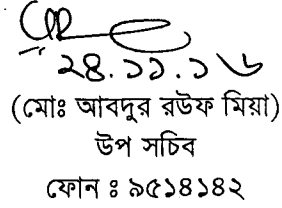 ২৪.১১.১৬
(মোঃ আবদুর রউফ মিয়া)
উপ সচিব
ফোন ঃ ৯৫১৪১৪২